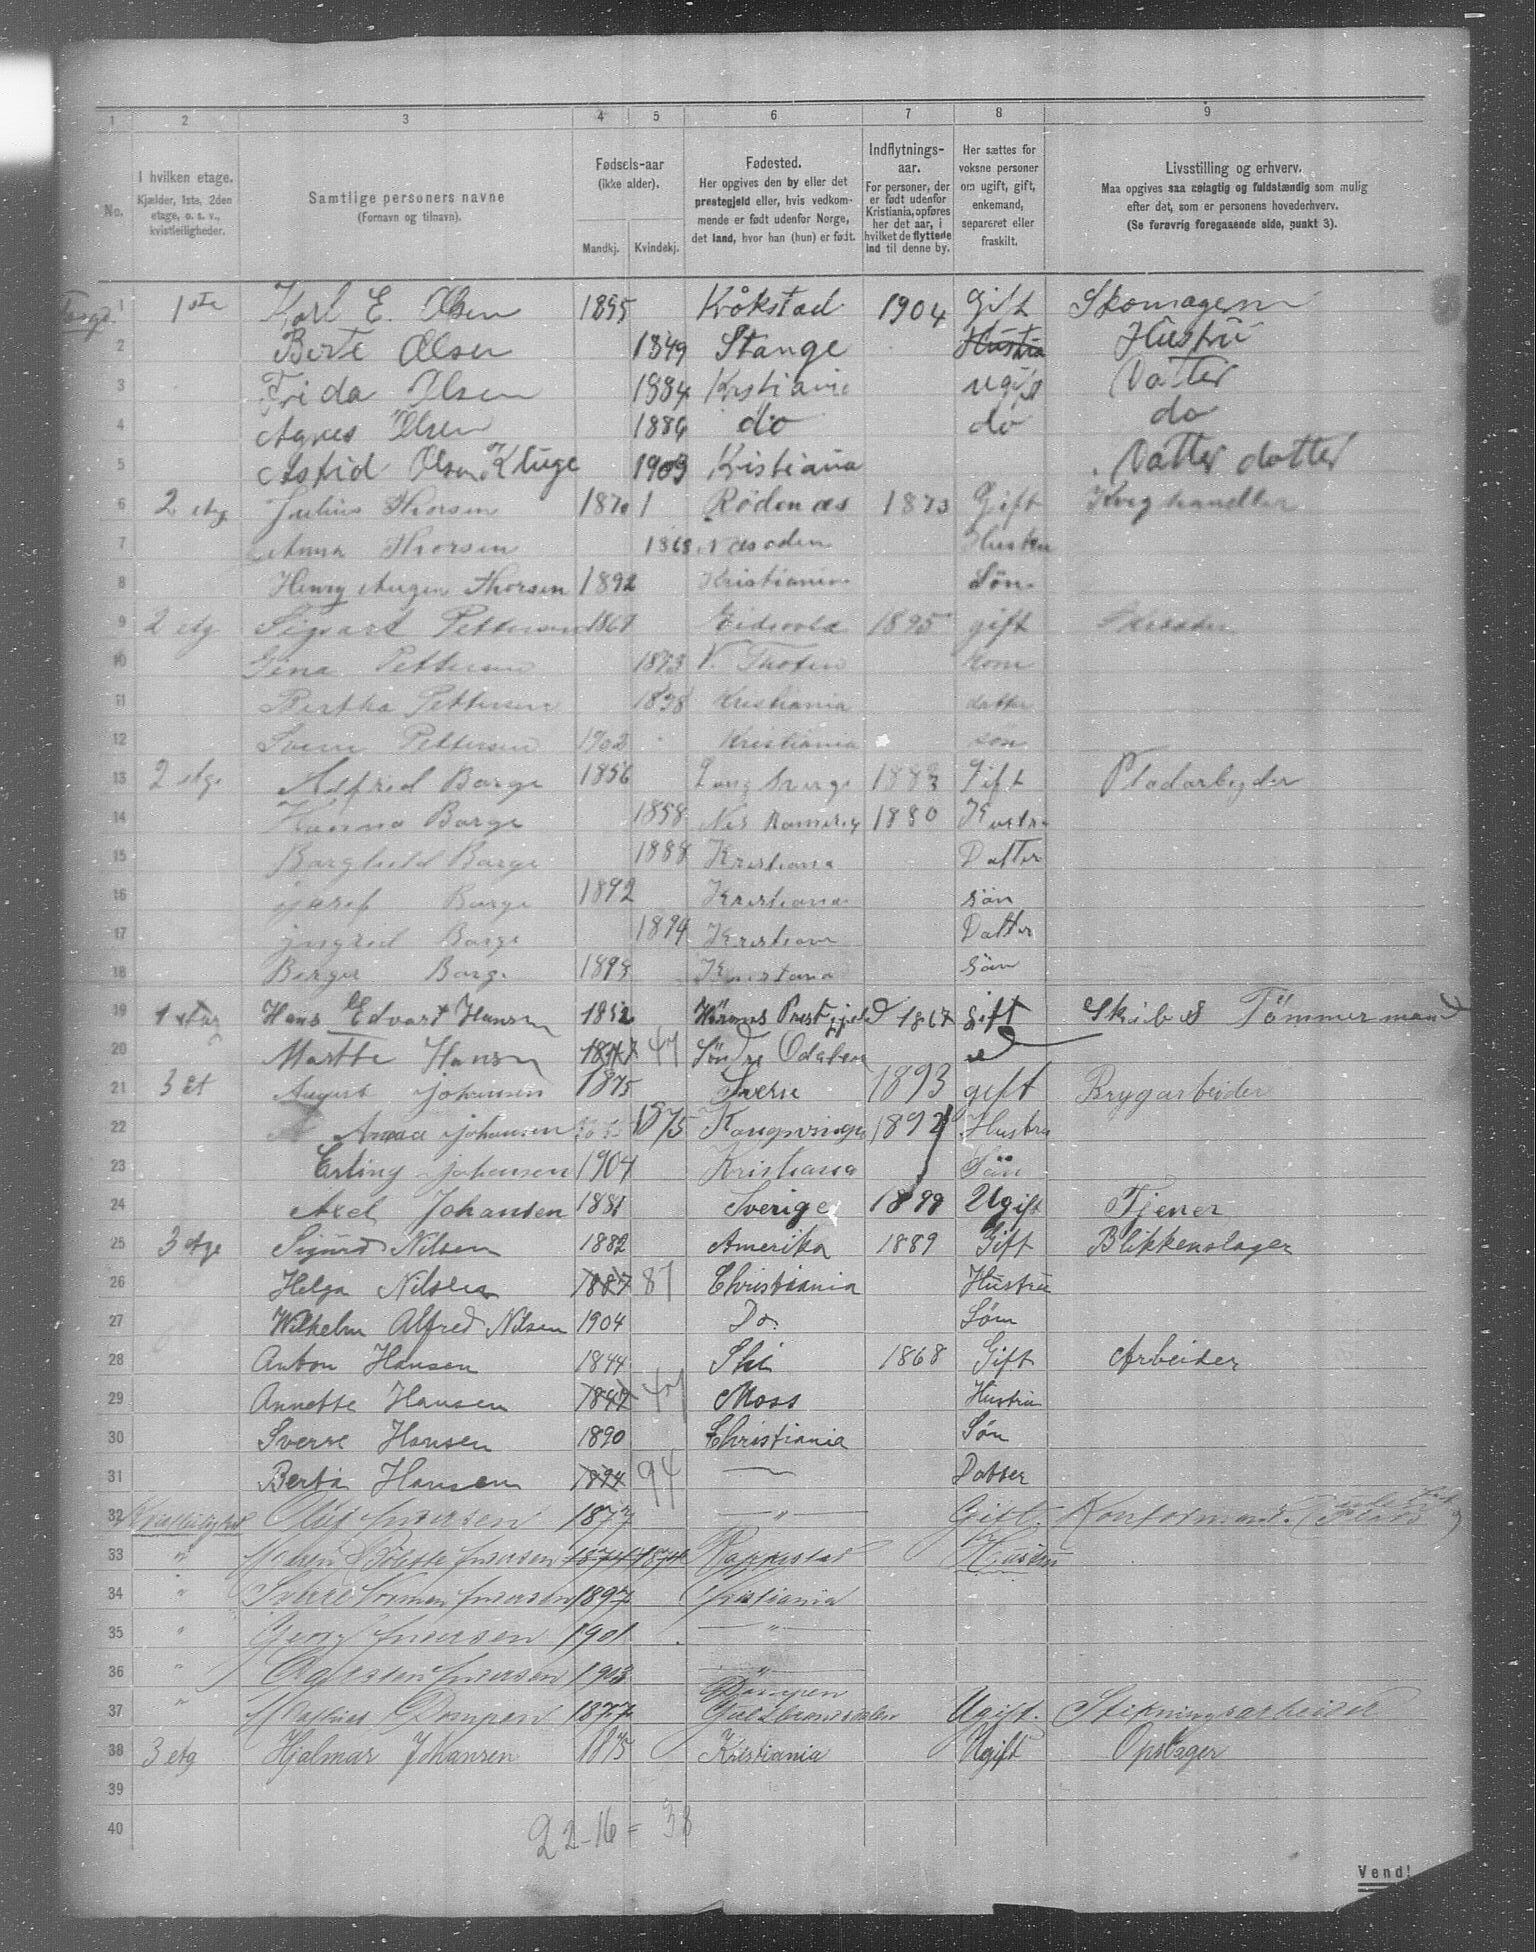 1 2 3 4 5 6 7 8 9
No.
I hvilken etage.
Kjælder, 1ste, 2den
etage, o. s. v.,
kvistleiligheder.
Samtlige personers navne
(Fornavn og tilnavn).
Fødsels-aar
(ikke alder).
Mandkj. Kvindekj.
Fødested.
Her opgives den by eller det
prestegjeld eller, hvis vedkom-
mende er født udenfor Norge,
det land, hvor han (hun) er født.
Indflytnings-
aar.
For personer, der
er født udenfor
Kristiania, opføres
her det aar, i
hvilket de flyttede
ind til denne by.
Her sættes for
voksne personer
om ugift, gift,
enkemand,
separeret eller
fraskilt.
Livsstilling og erhverv.
Maa opgives saa nøiagtig og fuldstændig som mulig
efter det, som er personens hovederhverv.
(Se forøvrig foregaaende side, punkt 3).
1 1ste Karl E. Olsen 1855 Kråkstad 1904 Gift Skomagern
2 Berte Olsen 1849 Stange Hustru Hustru
3 Frida Olsen 1884 Krstiania ugift Datter
4 Agnes Olsen 1886 do do do
5 Astrid Olsen Kluge 1903 Kristiania Datter datter
6 2 etg Julius Thorsen 1870 1 Rødenæs 1873 Gift Kveghandler
7 Anna Thorsen 1868 Næsodden Hustru
8 Henry Thorsen 1892 Kristiania Søn
9 2 etg Sigvart Pettersen 1867 Eidsvold 1895 gift
10 Gina Pettersen 1873 V. Thoten kone
11 Bertha Pettersen 1898 Kristiania datter
12 Pettersen 1902 Kristiania søn
13 2 etg. Alfred Borge 1856 Gift Pladarbeyder
14 Hanna Borge 1858 Nes Romerig 1880 Hustru
15 Borghild Borge 1888 Kristiana Datter
16 josef Borge 1892 Kristiana søn
17 jngrid Borge 1894 Kristiana Datter
18 Borger Borge 1898 Kristiana søn
19 1 etag Hans Edvart Hansen 1852 1867 gift Skibs Tömmermand
20 Marthe Hansen 1847 47 Söndre Odalen d
21 3 et August johansen 1875 Sverie 1893 gift Brygarbeider
22 Anna johansen 1875 Kongsvinger 1892 Hustru
23 Erling johansen 1904 Kristiana Søn
24 Axel Johansen 1881 Sverige 1899 Ugift Tjener
25 3 etge Sigurd Nilsen 1882 Amerika 1889 Gift Blikkenslager
26 Helga Nilsen 1887 87 Christiania Hustru
27 Wilhelm Alfred Nilsen 1904 Do. Søn
28 Anton Hansen 1844 Ski 1868 Gift Arbeider
29 Annette Hansen 1847 47 Moss Hustru
30 Sverre Hansen 1890 Christiania Søn
31 Berta Hansen 1894 94 — Datter
32 Oluf Andersen 1877 — " — Gift. Kontormand.
33 " Maren Bolette Andersen 1874 1874 Rakkestad Hustru
34 " Sverre Norman Andersen 1897 Kristiania
35 " Georg Andersen 1901 — " —
36 " Andersen 1903 — " —
37 " Mathias Dompen 1877 Guldbrandsdalen Ugift. Stikningsarbeider
38 3 etg Hjalmar Johansen 1875 Kristiania Ugift Opslager
39
40
22-16 = 38
Vend!